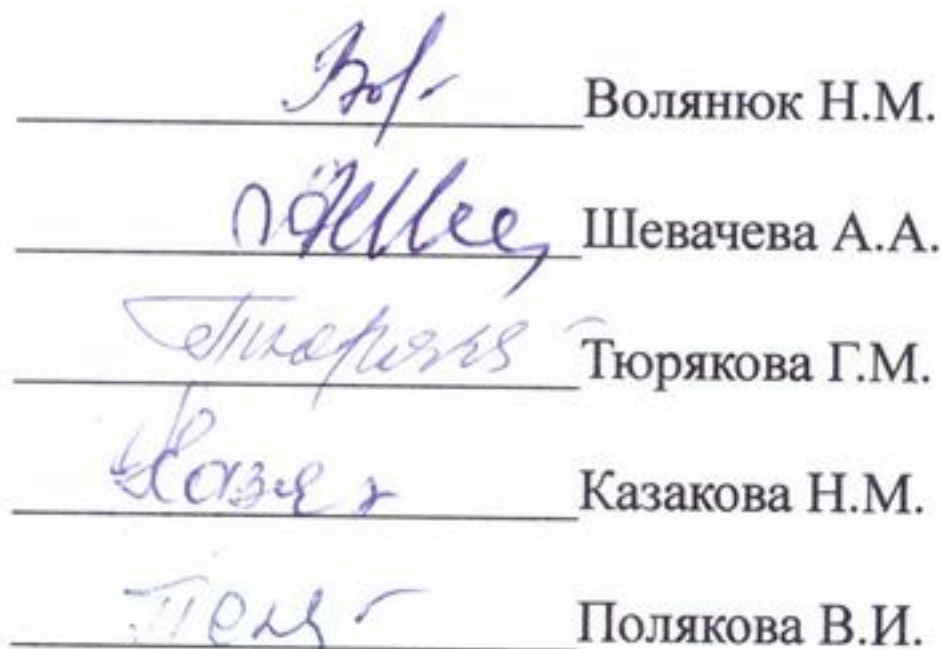 Волянюк Н.М.
Шевачева А.А.
Тюрякова Г.М.
Казакова Н.М.
Полякова В.И.